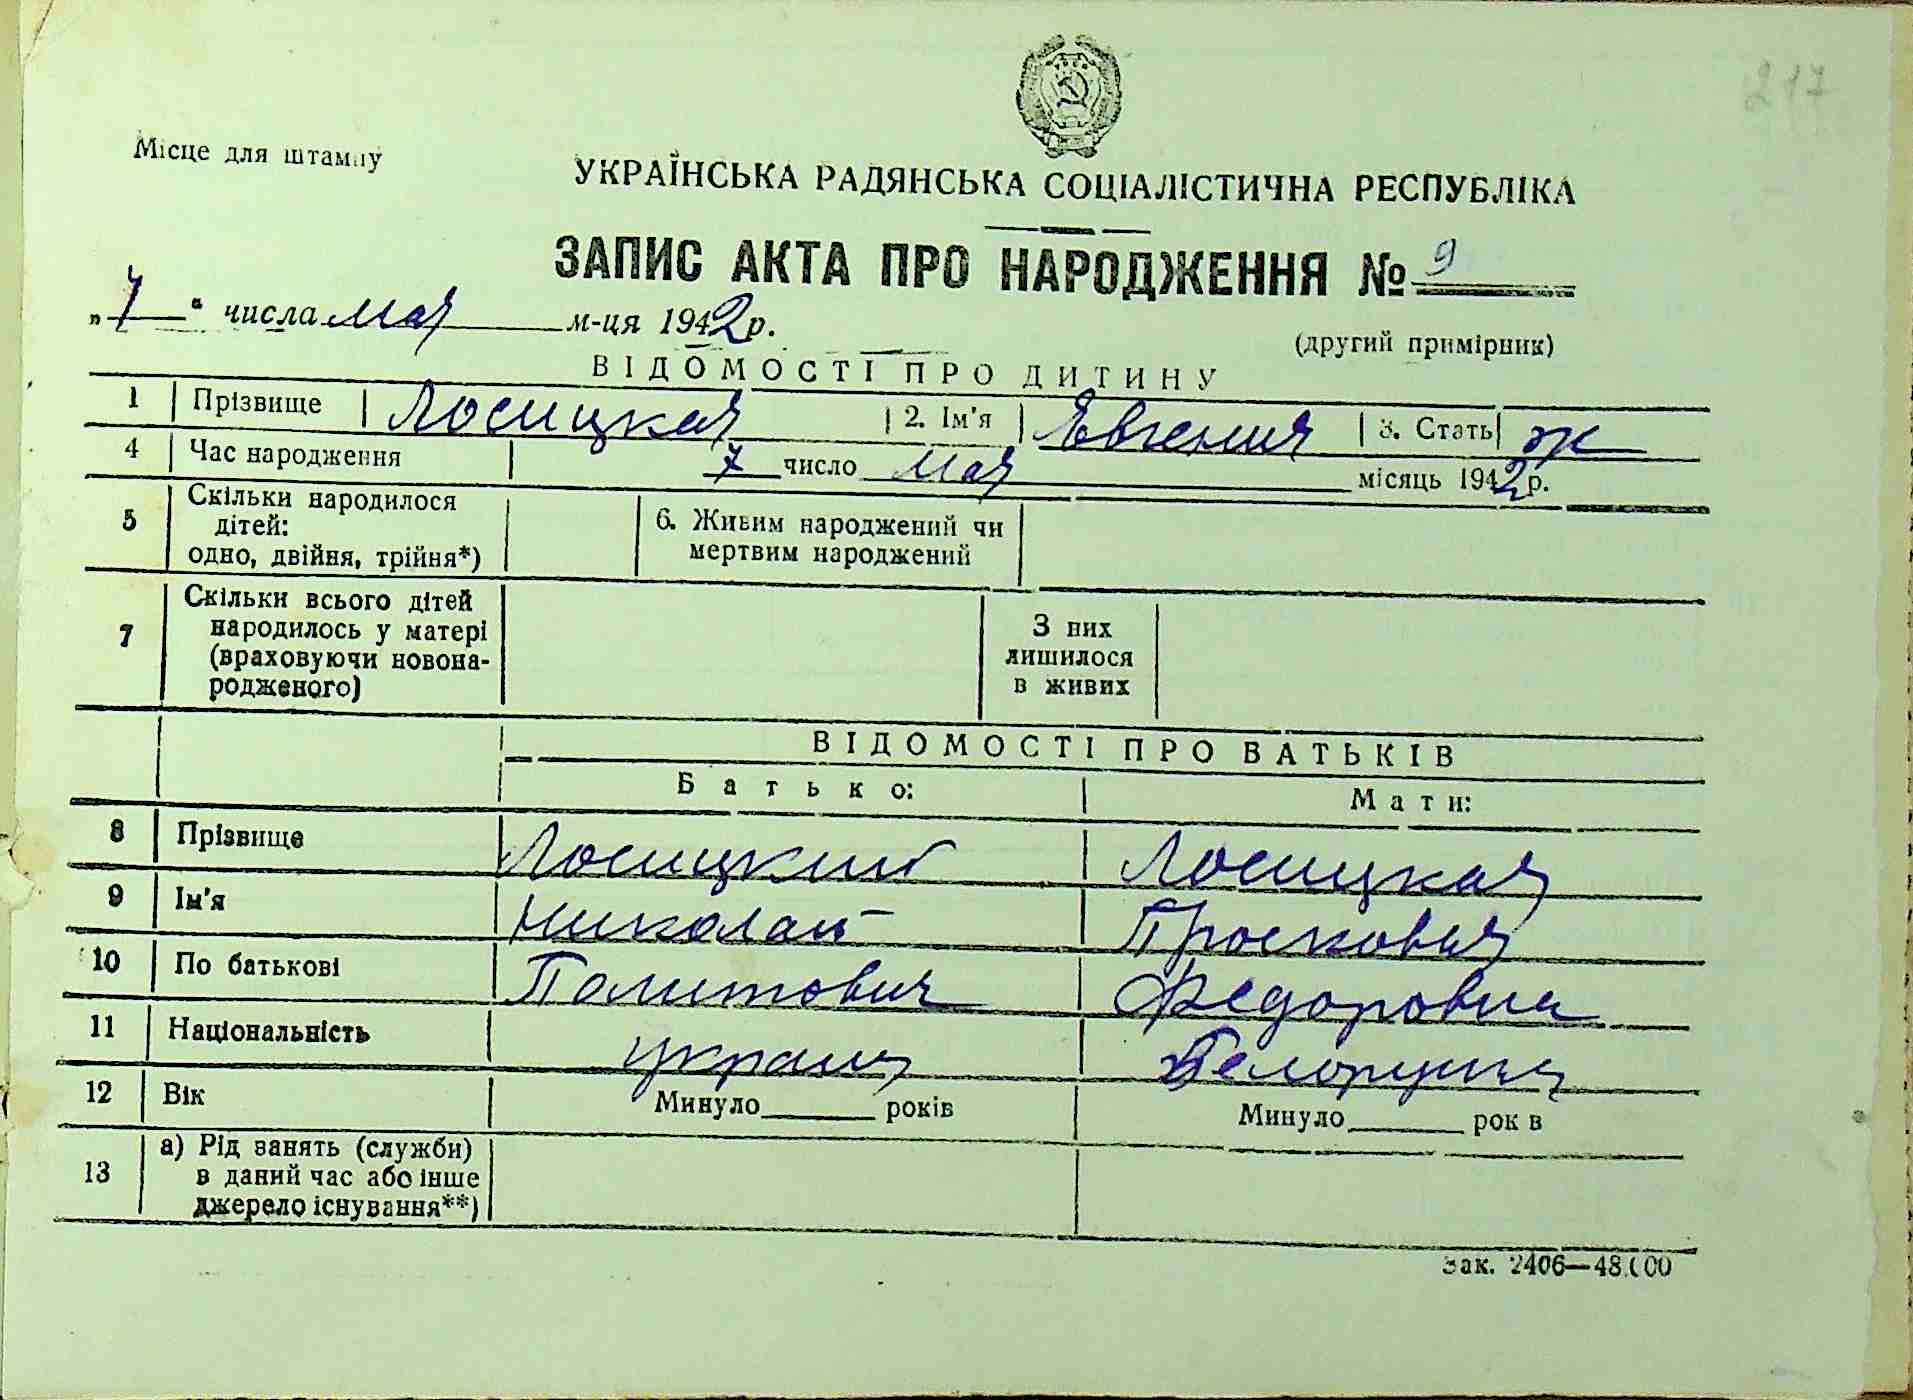 217
Місце для штампу
УКРАЇНСЬКА РАДЯНСЬКА СОЦІАЛІСТИЧНА РЕСПУБЛІКА
ЗАПИС АКТА ПРО НАРОДЖЕННЯ № 9
„7“ числа мая м-ця 1942 р.
(другий примірник)
ВІДОМОСТІ ПРО ДИТИНУ
1 Прізвище Лосицкая 2. Ім'я Евгения 3. Стать ж
4 Час народження 7 число мая місяць 1942 р.
5 Скільки народилося дітей: одно, двійня, трійня*) 6. Живим народжений чи мертвим народжений
7 Скільки всього дітей народилось у матері (враховуючи новонародженого) З них лишилося в живих
ВІДОМОСТІ ПРО БАТЬКІВ
Батько: Мати:
8 Прізвище Лосицкий Лосицкая
9 Ім'я Николай Просковия
10 По батькові Политович Федоровна
11 Національність украин
12 Вік Минуло років Минуло рок в
13 а) Рід занять (служби) в даний час або інше джерело існування**)
Зак. 2406—48.000